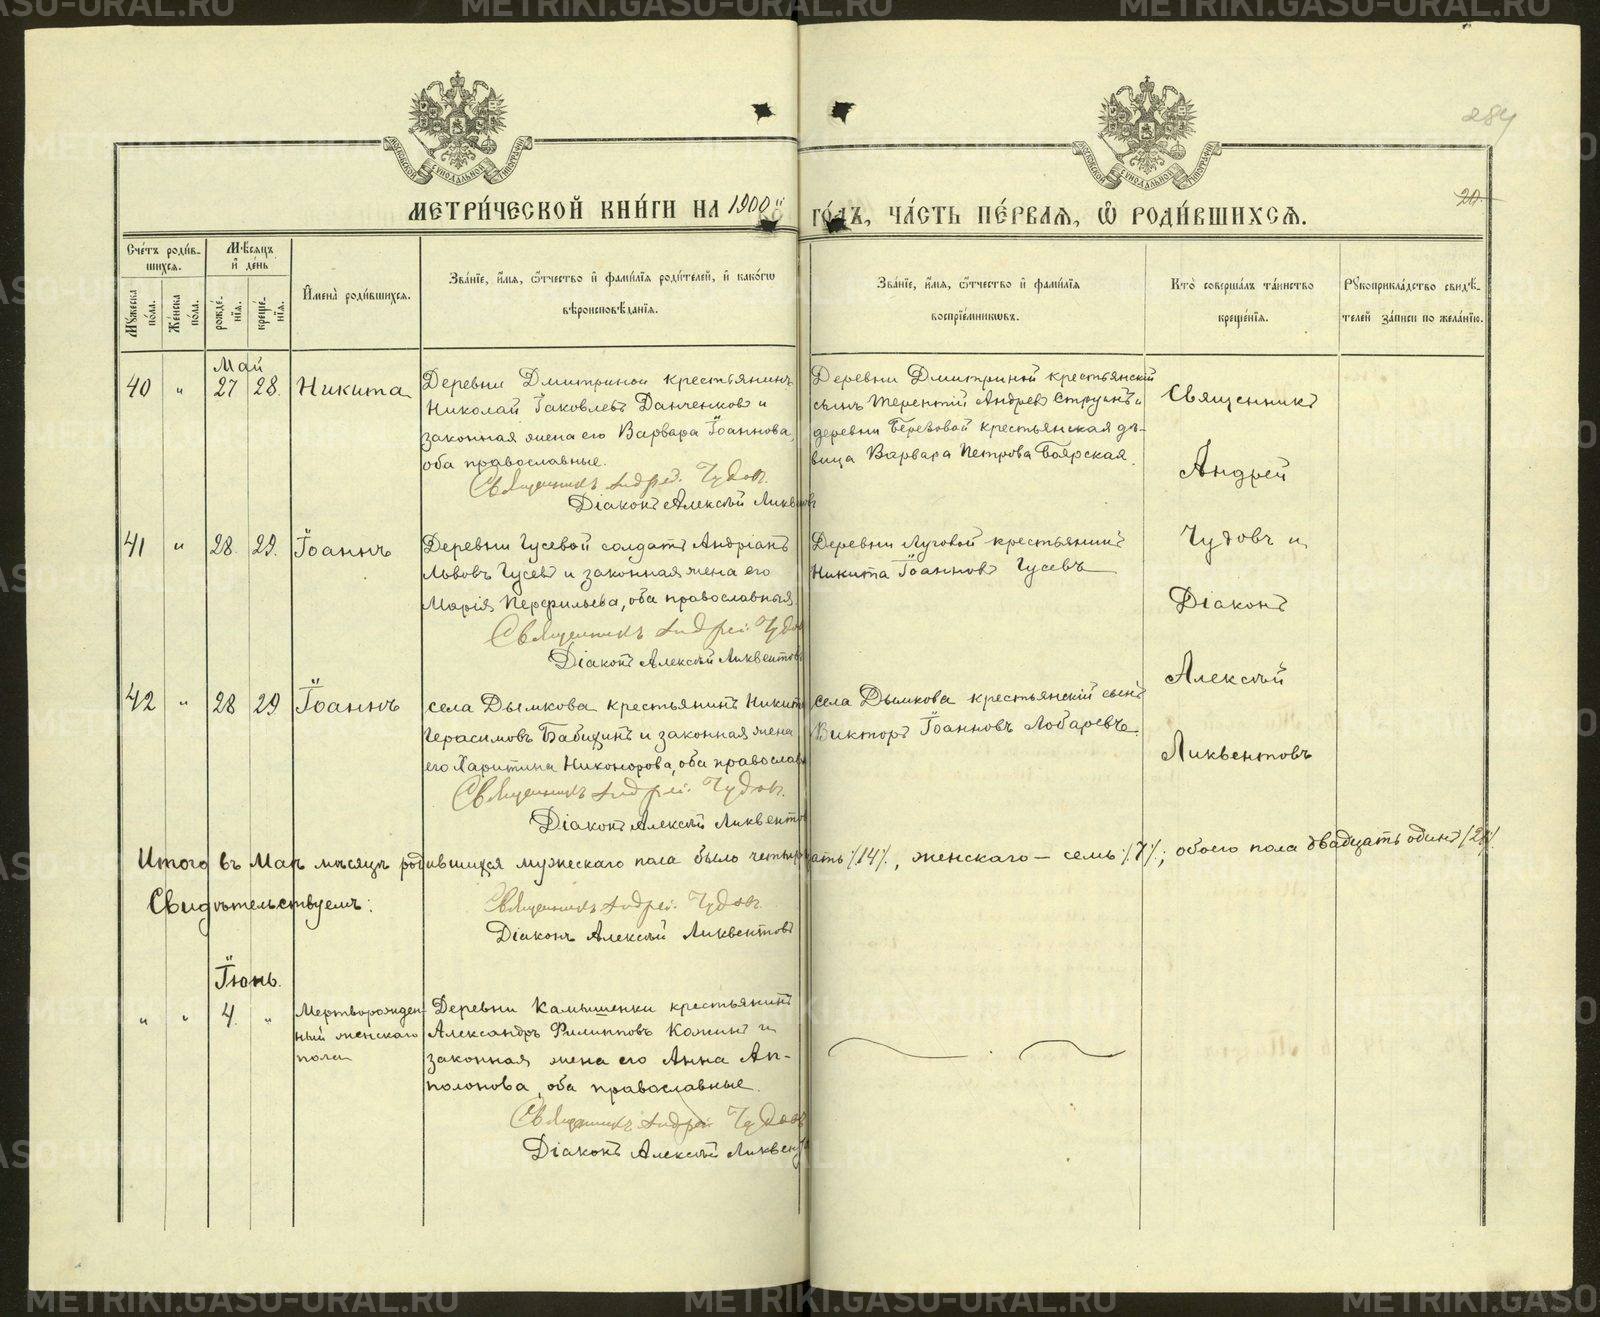 METRIKI.GASU-URAL.RU
284
МОСКОВСКОЙ СѴНОДАЛЬНОЙ ТИПОГРАФІИ
МОСКОВСКОЙ СѴНОДАЛЬНОЙ ТИПОГРАФІИ
20.
МЕТРИ́ЧЕСКОЙ КНИ́ГИ НА 1900й ГО́ДЪ, ЧА́СТЬ ПЕ́РВАЯ, Ѽ РОДИ́ВШИХСЯ.
Сче́тъ роди́в-
шихся.
Мѣ́сяцъ
и҆ де́нь
Мꙋ́жеска по́ла.
Же́нска по́ла.
рожде́-нїѧ.
креще́-нїѧ.
И҆мена̀ роди́вшихся.
Зва́нїе, и҆́мѧ, ѻ҆́тчество и҆ фами́лїѧ роди́телей, и҆ како́гѡ
вѣроисповѣ́данїѧ.
Зва́нїе, и҆́мѧ, ѻ҆́тчество и҆ фами́лїѧ
воспрїе́мникѡвъ.
Кто̀ соверша́лъ та́инство
креще́нїѧ.
Рꙋкоприкла́дство свидѣ́-
телей за́писи по жела́нїю.
Май
40 " 27 28. Никита
Деревни Дмитриной крестьянинъ
Николай Іаковлевъ Данченковъ и
законная жена его Варвара Іоаннова,
оба православные.
Священникъ Андрей Чудовъ.
Діаконъ Алексѣй Ликвентовъ
Деревни Дмитриной крестьянскій
сынъ Терентій Андреевъ и
деревни Березовой крестьянская дѣ-
вица Варвара Петрова Боярская.
Священникъ
Андрей
Чудовъ и
Діаконъ
Алексѣй
Ликвентовъ
41 " 28. 29. Іоаннъ
Деревни Гусевой солдатъ Андріанъ
Львовъ Гусевъ и законная жена его
Марія Перфильева, оба православныя
Священникъ Андрей Чудовъ
Діаконъ Алексѣй Ликвентовъ
Деревни Луговой крестьянинъ
Никита Іоанновъ Гусевъ
42 " 28 29 Іоаннъ
села Дымкова крестьянинъ Никита
Герасимовъ Бабихинъ и законная жена
его Харитина Никонорова, оба православ
Священникъ Андрей Чудовъ.
Діаконъ Алексѣй Ликвентов
села Дымкова крестьянскій сынъ
Викторъ Іоанновъ Лобаревъ
Итого въ Маѣ мѣсяцѣ родившихся мужескаго пола было четырнадцать /14/, женскаго — семь /7/; обоего пола двадцать одинъ /21/.
Свидѣтельствуемъ:
Священникъ Андрей Чудовъ
Діаконъ Алексѣй Ликвентовъ
Іюнь.
" " 4. " Мертворожден-
ный женскаго
пола
Деревни Камышенки крестьянинъ
Александръ Филипповъ Кожинъ и
законная жена его Анна Ап-
полонова, оба православные.
Священникъ Андрей Чудовъ
Діаконъ Алексѣй Ликвент